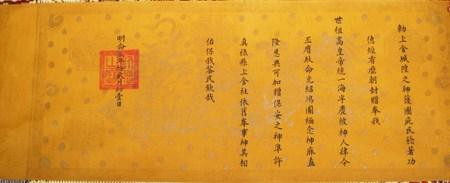 勅上金城隍之神護國庇民稔著功
德經有歷朝封贈奉我
世祖高皇帝統一海宇慶被神人肆今
丕膺耿命光紹鴻圖緬念神庥盍
隆恩典可加贈保安之神準許
真福縣上金社依舊奉事神其相
佑保我黎民欽哉
明命年月壹日